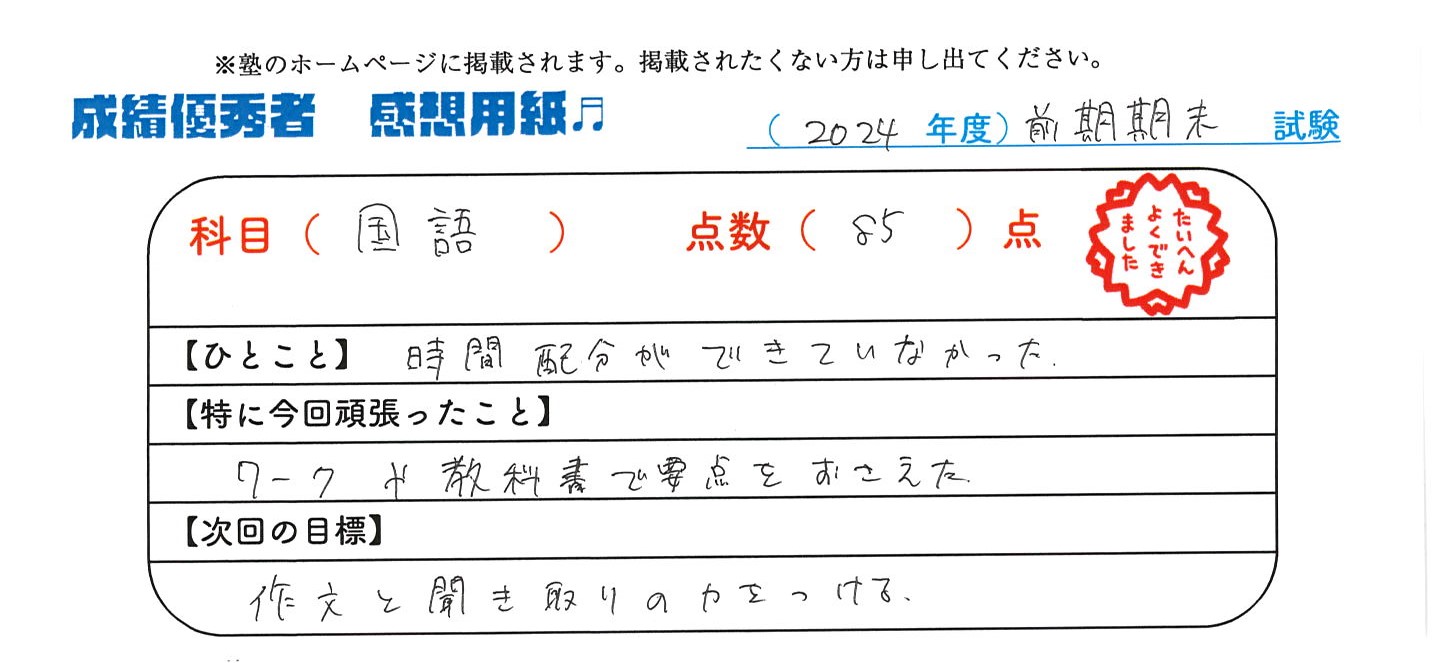 ※塾のホームページに掲載されます。掲載されたくない方は申し出てください。
成績優秀者　感想用紙♬
（2024年度）前期期末　試験
科目（国語）　点数（85）点
たいへん
よくでき
ました
【ひとこと】時間配分ができていなかった.
【特に今回頑張ったこと】
ワークや教科書で要点をおさえた.
【次回の目標】
作文と聞き取りの力をつける.